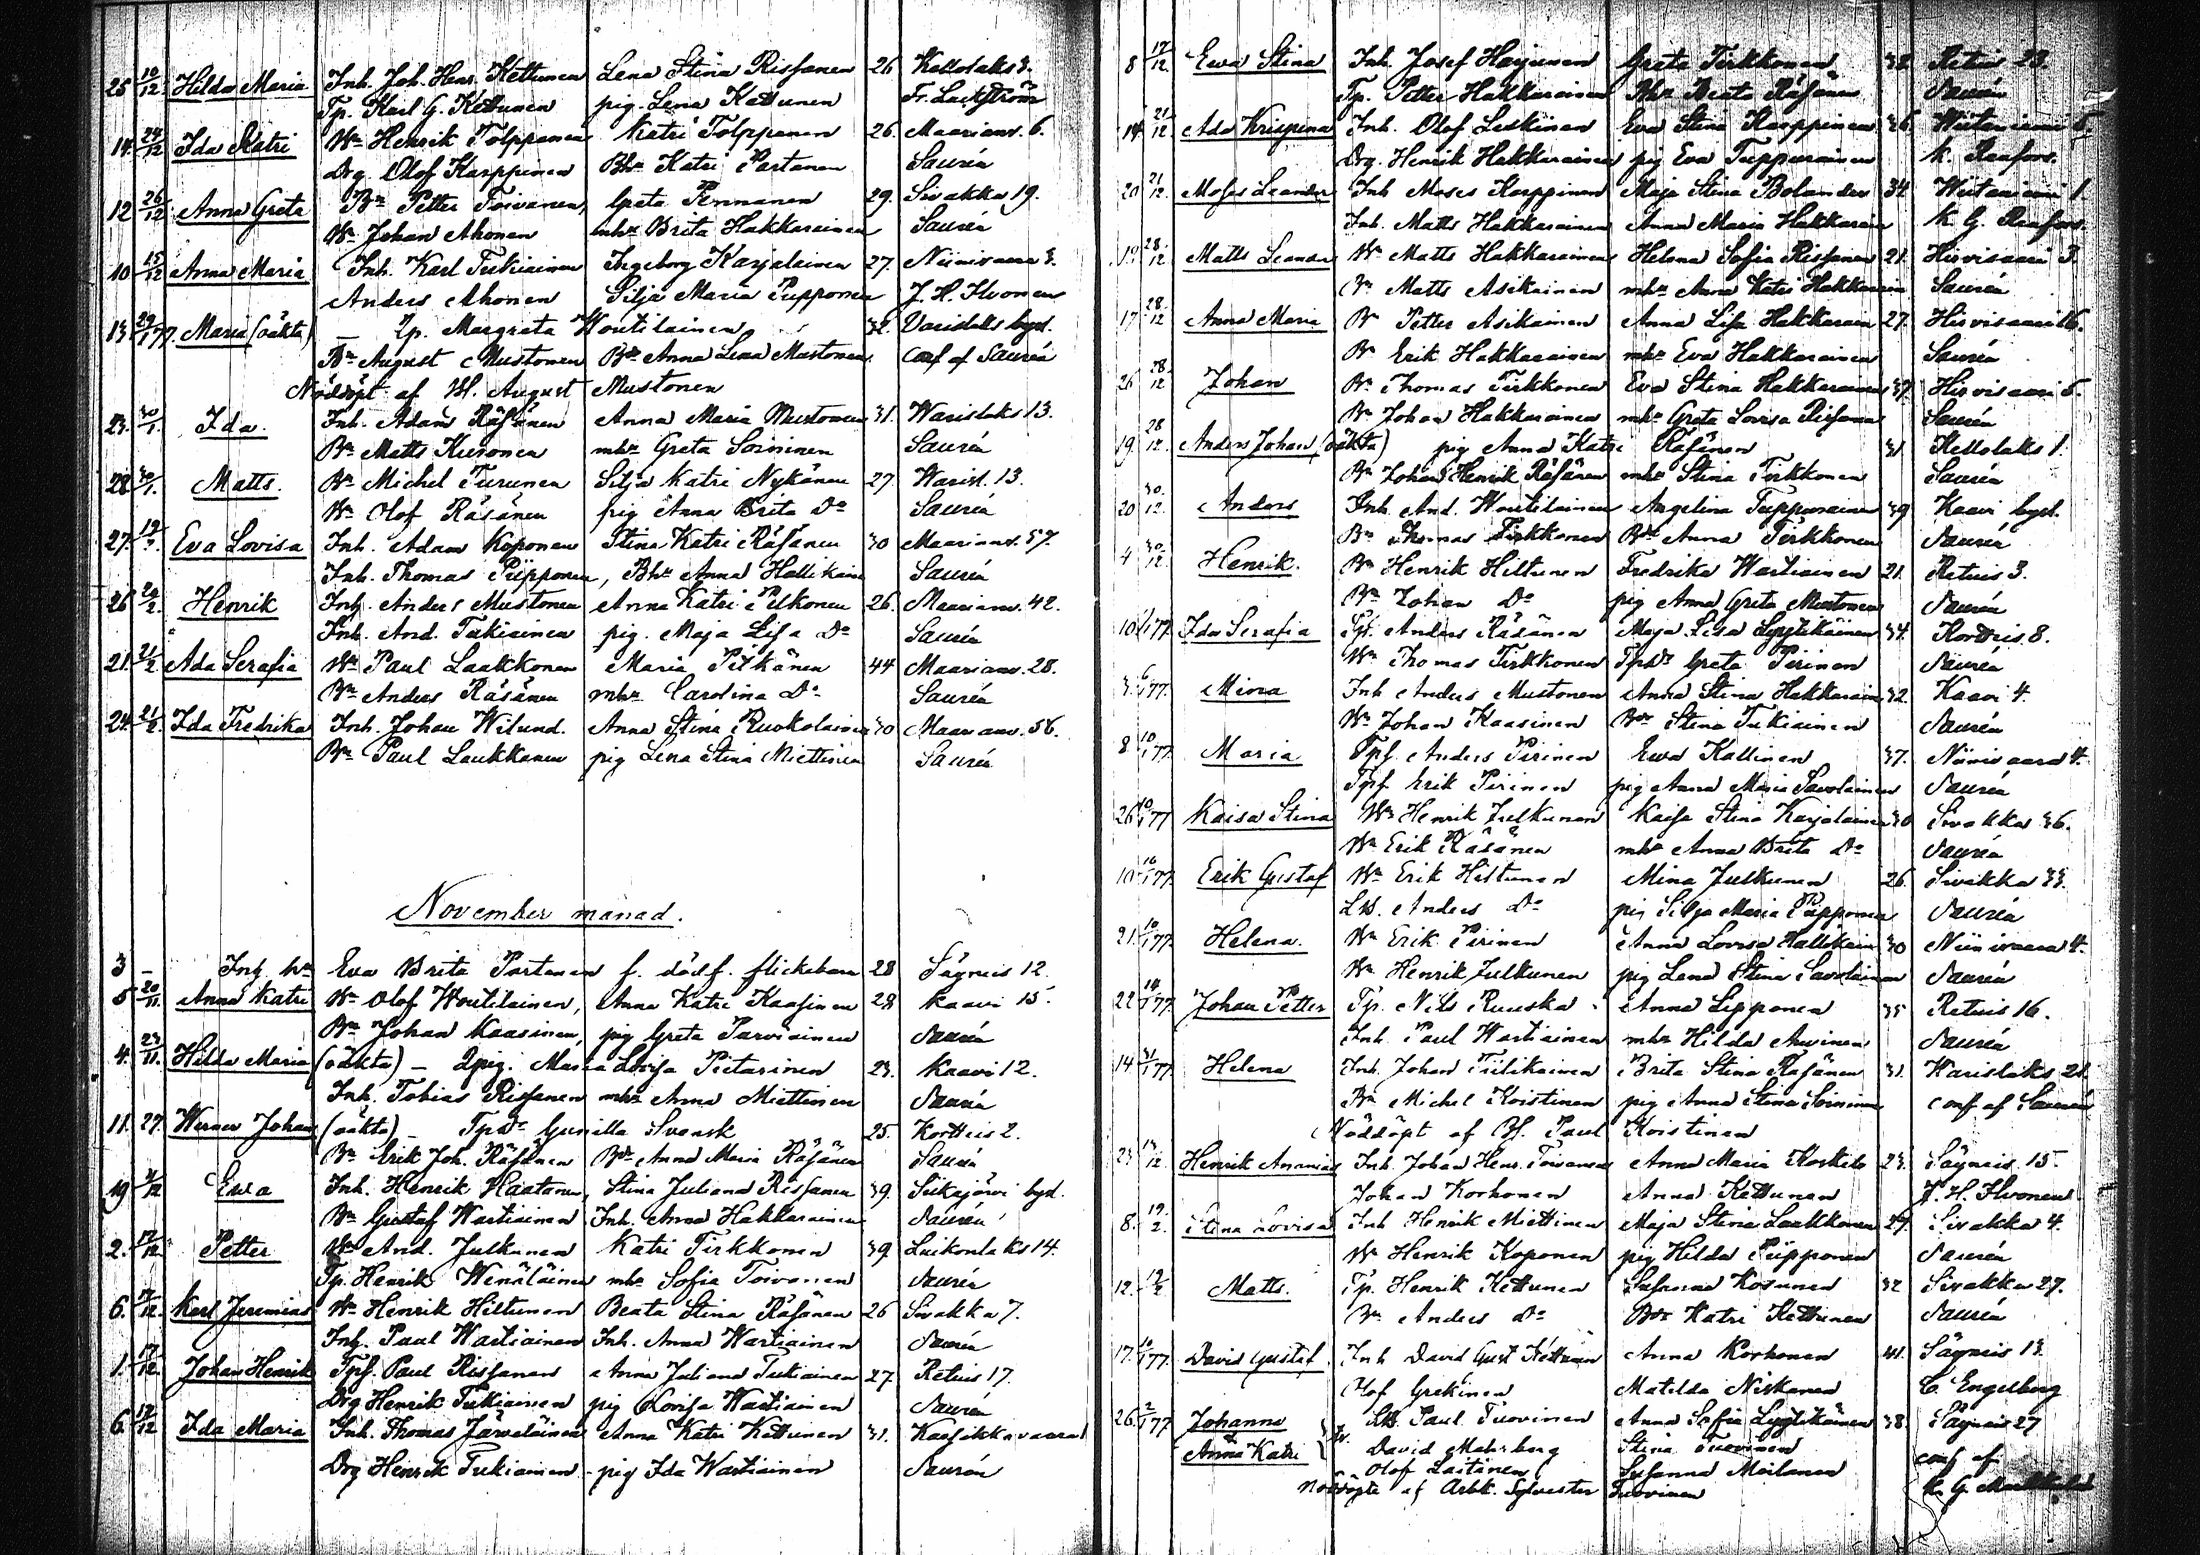 25 10/12 Hilda Maria Inh. Joh. Henr. Kettunen Lena Stina Rissanen 26 Kellolaks 3.
Tp. Karl G. Kettunen pig. Lena Kettunen Fr. Lackström
14. 24/12 Ida Katri Wn Henrik Tolppanen Katri Tolppanen 26. Maarianv. 6.
Drg Olof Karppinen Bhr Katri Partanen Saurén
12 26/12 Anna Greta Bn Petter Toivanen, Greta Pennanen 29. Sivakka 19.
Wn Johan Ahonen mhr Brita Hakkarainen Saurén
10 15/12 Anna Maria Inh. Karl Tukiainen Ingeborg Karjalainen 27. Niinivaara 3.
Anders Ahonen Silja Maria Pipponen J. H. Ilvonen
13. 29/1 77 Maria (oäkta) — Tp. Margreta Woutilainen 32. Varislaks byd.
Bn August Mustonen Bdr Anna Lena Mustonen conf af Saurén
Nöddöpt af Bl. August Mustonen
23. 30/1. Ida. Inh. Adam Räsänen Anna Maria Mustonen 31. Warislaks 13.
Bn Matts Kusonen mhr Greta Soininen Saurén
28 30/1. Matts. Bn Michel Turunen Silja Katri Nykänen 27 Warisl. 13.
Wn Olof Räsänen pig Anna Brita Do Saurén
27. Eva Lovisa Inh. Adam Koponen Stina Katri Räsänen 30 Maarianv. 57.
Inh. Thomas Pipponen, Bhr Anna Hallikain Saurén
26 20/2. Henrik Inh. Anders Mustonen Anna Katri Pelkonen 26. Maarianv. 42.
Inh. And. Tukiainen pig. Maja Lisa Do Saurén
21. 21/2 Ada Serafia Wn Paul Laakkonen Maria Pitkänen 44 Maarianv. 28.
Bn Anders Räsänen mhr Carolina Do Saurén
24. 21/2. Ida Fredrika Inh. Johan Wilund. Anna Stina Ruokolainen 30 Maarianv. 56.
Bn Paul Laukkanen pig Lena Stina Miettinen Saurén
November månad.
3 — Inh. hn Eva Brita Partanen f. dödf. flickebarn 28 Säyneis 12.
5 20/11. Anna Katri Wn Olof Woutilainen, Anna Katri Kaasinen 28 Kaavi 15.
Bn Johan Kaasinen, pig Greta Parviainen Saurén
4. 23/11. Hilda Maria (oäkta) — Qpig. Maria Lovisa Pietarinen 23. Kaavi 12.
Inh. Tobias Rissanen mhr Anna Miettinen Saurén
11. 27. Werner Johan (oäkta) — Tpdr Gunilla Svensk 25. Korttis 2.
Bn Erik Joh. Räsänen Bdr Anna Maria Räsänen Saurén
19 Ewa Inh. Henrik Haatanen, Stina Juliana Rissanen 39. Siikajärvi byd.
Bn Gustaf Wartiainen Inh. Anna Hakkarainen Saurén
2. 17/12. Petter Wn And. Julkunen Katri Tirkkonen 39. Luikonlaks 14.
Tp. Henrik Wenäläinen mhr Sofia Toivanen Saurén
6. 17/12. Karl Jeremias Wn Henrik Hiltunen Beata Stina Räsänen 26 Sivakka 7.
Inh. Paul Wartiainen Inh. Anna Wartiainen Saurén
1. 17/12. Johan Henrik Tpf. Paul Rissanen Anna Juliana Tukiainen 27. Retuis 17.
Drg Henrik Tukiainen pig Lovisa Wartiainen Saurén
6. 17/12 Ida Maria Inh. Thomas Järveläinen Anna Katri Kettunen 31. Kaasikkavaara
Drg Henrik Tukiainen pig Ida Wartiainen Saurén
8 17/12. Ewa Stina Inh. Josef Harjunen Greta Tirkkonen 32. Retuis 23.
Tp. Petter Hakkarainen Bhr Beata Räsänen Saurén
14. 21/12 Ada Krispina Inh. Olof Leskinen Eva Stina Karppinen 26. Wiitaniemi
Drg. Henrik Hakkarainen pig Eva Tuppurainen K. Ranfors.
20 21/12. Moses Leander Inh Moses Karppinen Maja Stina Bolander 34. Wiitaniemi 1.
Inh. Matts Hakkarainen Anna Maria Hakkarain K. G. Ranfors.
19 28/12 Matts Leander Wn Matts Hakkarainen Helena Sofia Rissanen 21. Hirvisaari 3.
Bn Matts Asikainen mhr Anna Katri Hakkarainen Saurén
17 28/12 Anna Maria Bn Petter Asikainen Anna Lisa Hakkarain 27. Hirvisaari 16.
Bn Erik Hakkarainen mhr Eva Hakkarainen Saurén
26 28/12 Johan Bn Thomas Tirkkonen Eva Stina Hakkarainen 37. Hirvisaari 5.
Bn Johan Hakkarainen mhr Greta Lovisa Rissanen Saurén
19. 28/12. Anders Johan (oäkta) pig Anna Katri Räsänen 31 Kellolaks 1.
Bn Johan Henrik Räsänen mhr Stina Tirkkonen Saurén
20 30/12. Anders Inh. And. Woutilainen Angelina Tuppurainen 39 Kaavi byd.
Bn Thomas Tirkkonen Bdr Anna Tirkkonen Saurén
4 30/12. Henrik. Bn Henrik Hiltunen Fredrika Wartiainen 21. Retuis 3.
Bn Johan Do pig Anna Greta Mustonen Saurén
10 77. Ida Serafia Tpf. Anders Räsänen Maja Lisa Lyytikäinen 34. Korttis 8.
Wn Thomas Tirkkonen Tpdr Greta Pirinen Saurén
3. 6/1 77. Mina Inh Anders Mustonen Anna Stina Hakkarain 32. Kaavi 4.
Wn Johan Kaasinen Bdr Stina Tukiainen Saurén
8 10/1 77. Maria Tpf. Anders Pirinen Ewa Kallinen 37. Niinivaara 4.
Tpf Erik Pirinen pig Anna Maria Savolainen Saurén
26 10/1 77 Kaisa Stina Wn Henrik Julkunen Kaisa Stina Karjalainen 30 Sivakka 36.
Wn Erik Räsänen mhr Anna Brita Do Saurén
10 16/1 77. Erik Gustaf Wn Erik Hiltunen Mina Julkunen 26. Sivakka 33.
Ls. Anders Do pig Silja Maria Pipponen Saurén
21. 10/1 77. Helena. Wn Erik Pirinen Anna Lovisa Hallikain 30 Niinivaara 4.
Wn Henrik Julkunen pig Lena Stina Savolainen Saurén
22 14/1 77. Johan Petter Tp. Nils Ruuska Anna Lipponen 35 Retuis 16.
Inh. Paul Wartiainen mhr Hilda Auvinen Saurén
14 31/1 77. Helena Inh. Johan Tiilikainen Brita Stina Räsänen 31. Warislaks 21.
Bn Michel Koistinen pig Anna Stina Soininen conf af Saurén
Nöddöpt af Bf. Paul Koistinen
23. Henrik Ananias Inh. Johan Henr. Toivanen Anna Maria Koskelo 23. Säyneis. 15.
Johan Korhonen Anna Kettunen J. H. Ilvonen
8. 19/2. Stina Lovisa Inh Henrik Miettinen Maja Stina Laukkanen 29. Sivakka 4.
Wn Henrik Koponen pig Hilda Pipponen Saurén
12. Matts. Tp. Henrik Kettunen Susanna Kosunen 32 Sivakka 27.
Bn Anders Do Bdr Katri Kettunen Saurén
17. 77. David Gustaf Inh David Gust Kettunen Anna Korhonen 41. Säyneis 13.
Olof Grekinen Matilda Niskanen C. Engelberg
26. 77 Johanna Ls. Paul Tuovinen Anna Sofia Lyytikäinen 38. Säyneis 27
& Anna Katri } tv. David Mahrberg Stina Tuovinen conf af.
Olof Laitinen Susanna Moilanen
Nöddöpte af Arbk. Sylvester Tuovinen K. G.